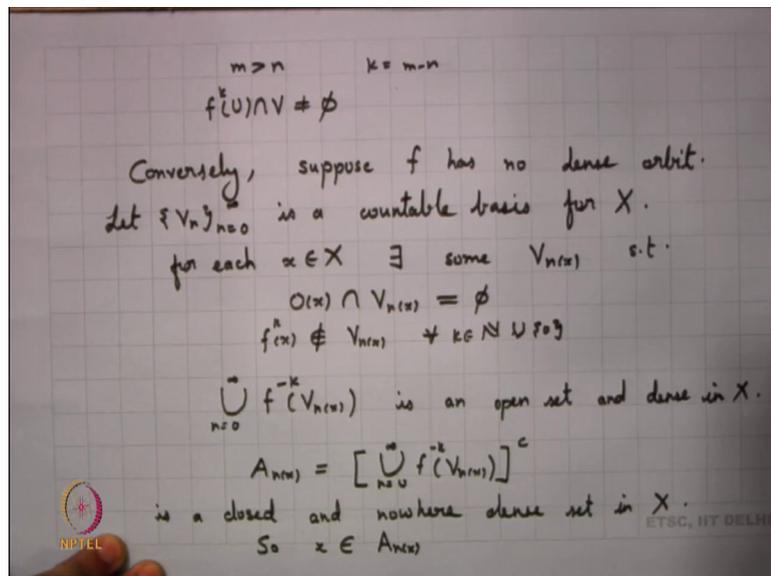 m > n k = m-n
f^k(U) ∩ V ≠ ∅
Conversely, suppose f has no dense orbit.
Let {V_n}_{n=0}^∞ is a countable basis for X.
for each x ∈ X ∃ some V_{n(x)} s.t.
O(x) ∩ V_{n(x)} = ∅
f^k(x) ∉ V_{n(x)} ∀ k ∈ ℕ ∪ {0}
⋃_{n=0}^∞ f^{-k}(V_{n(x)}) is an open set and dense in X.
A_{n(x)} = [⋃_{n=0}^∞ f^{-k}(V_{n(x)})]^c
is a closed and nowhere dense set in X.
So x ∈ A_{n(x)}
ETSC, IIT DELHI
NPTEL